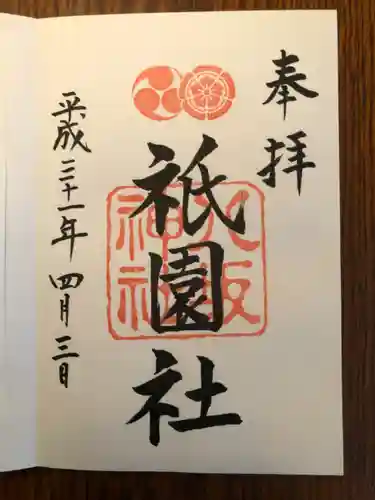 奉拝
祇園社
八阪
神社
平成三十一年四月三日